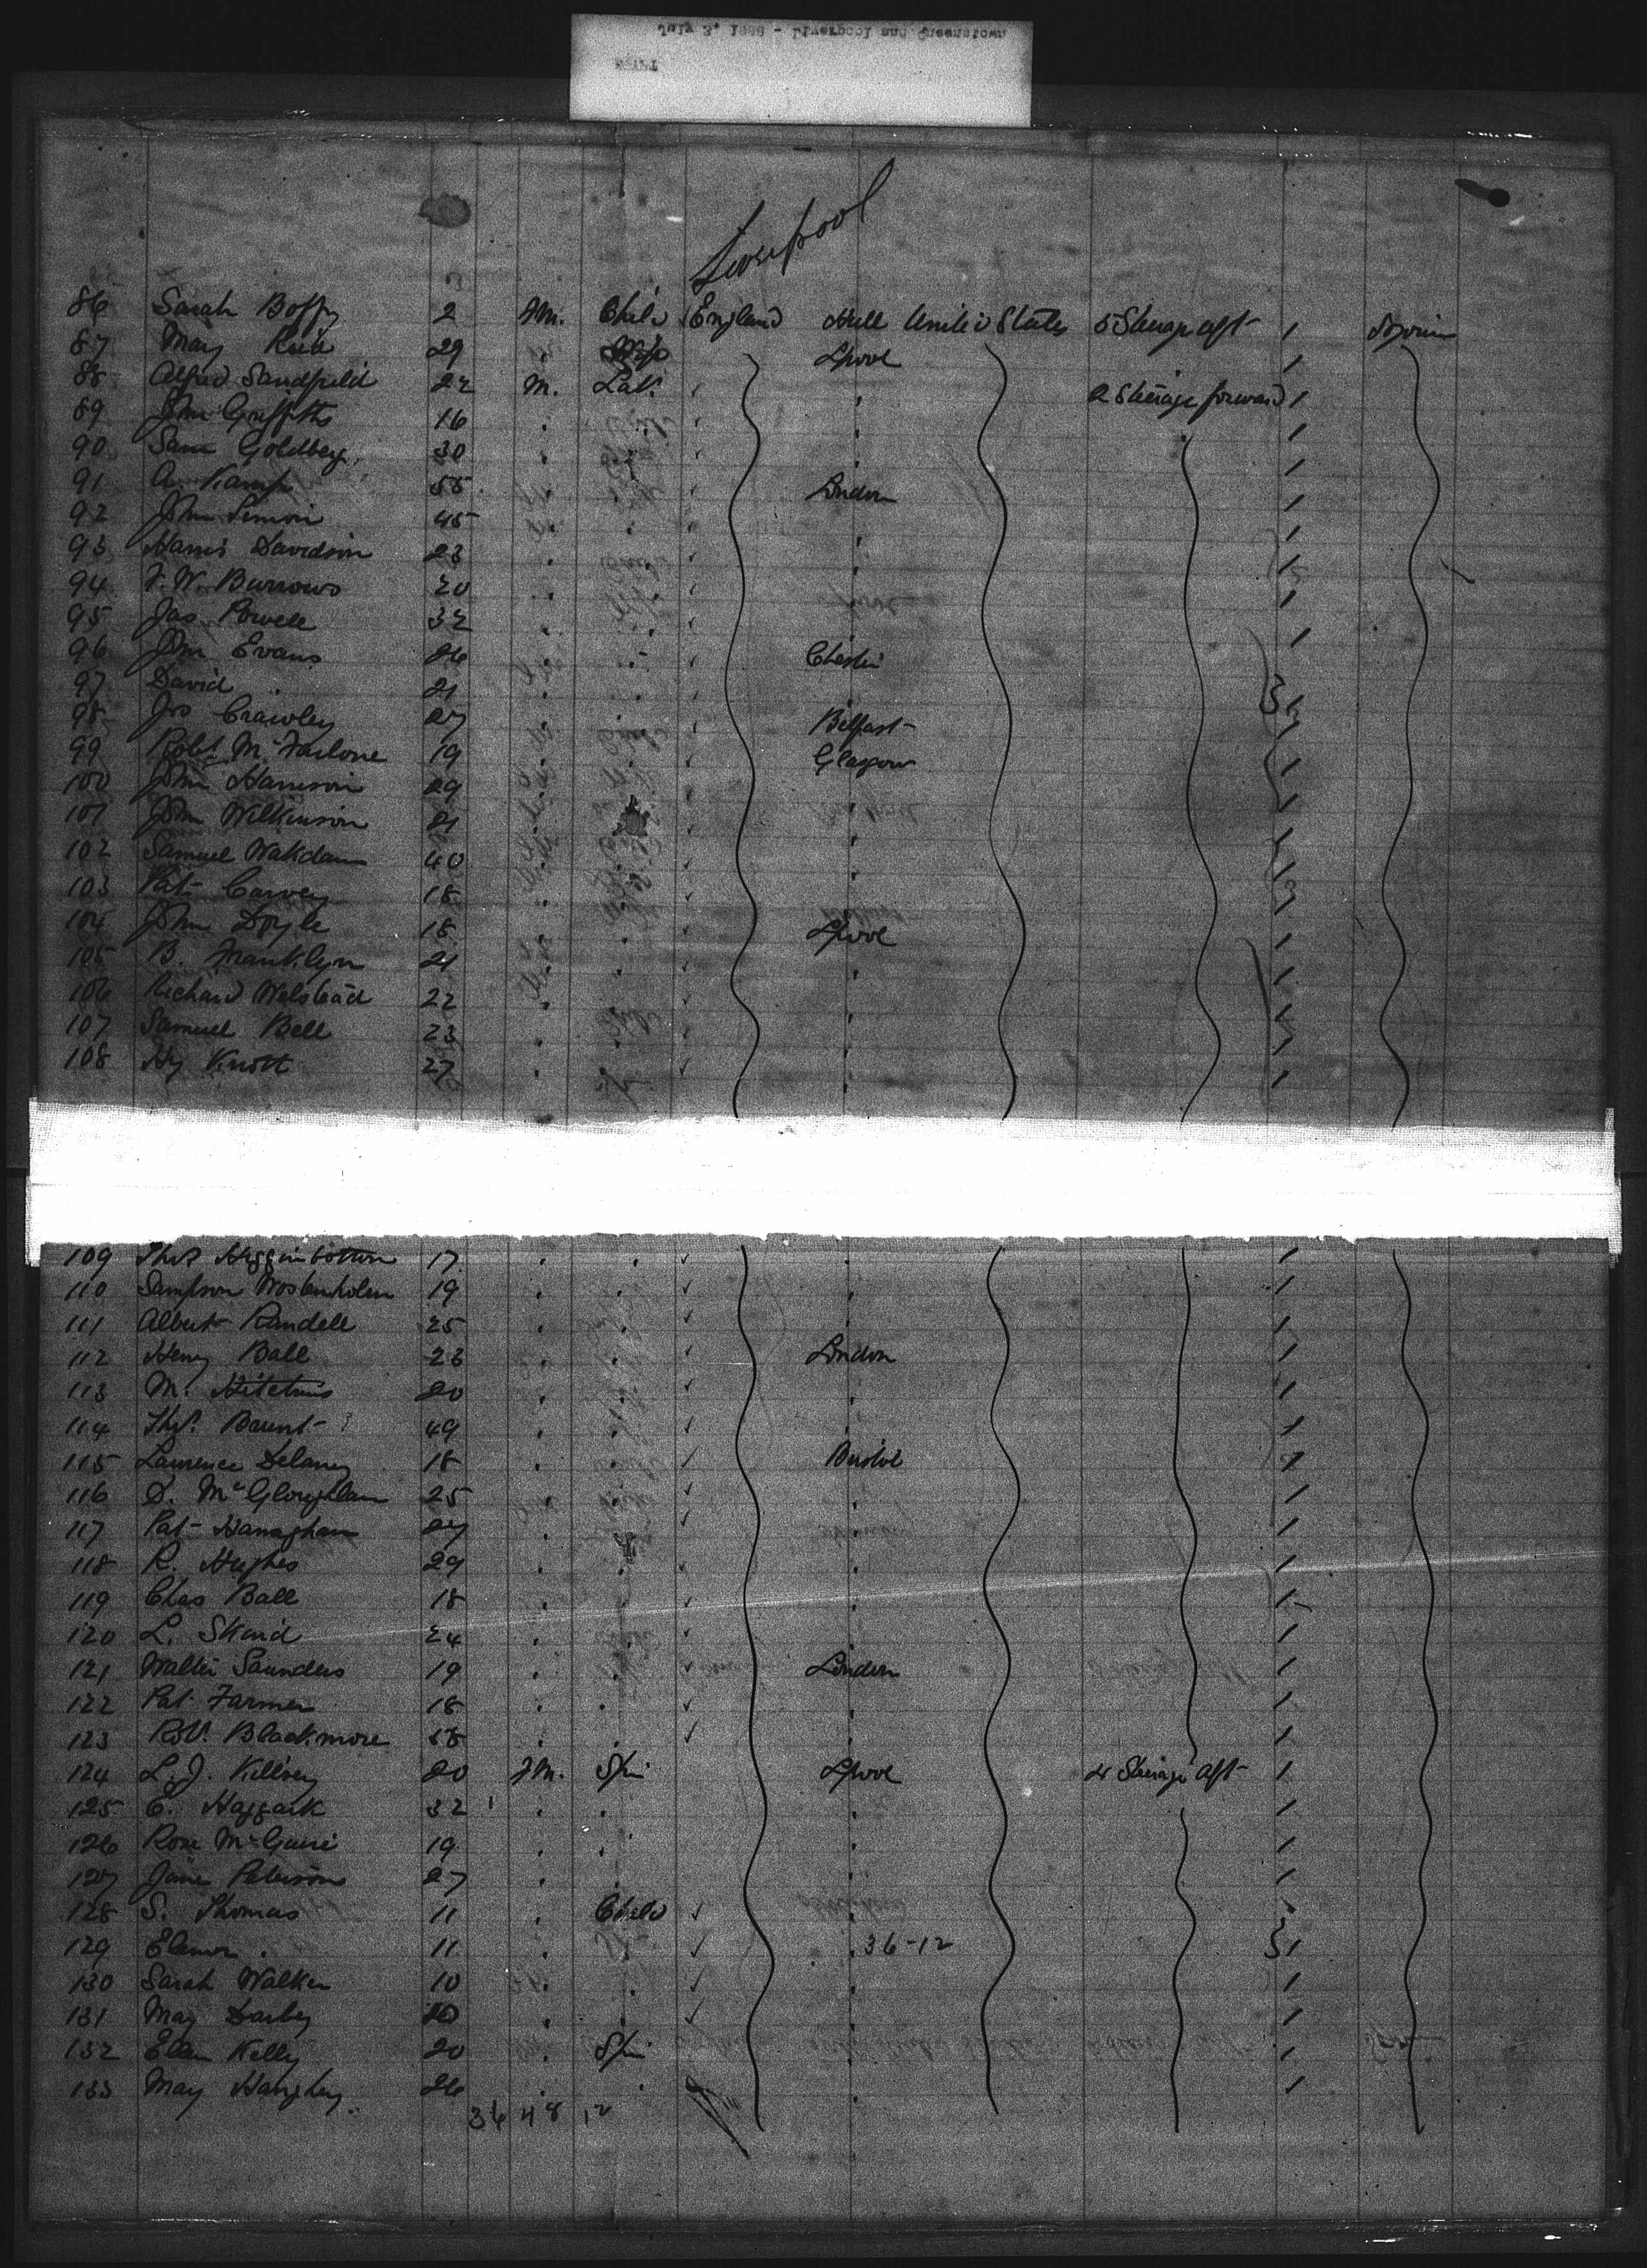 Liverpool
86 Sarah Boffy 2 Fm. Child England Hull United States 5 Steerage aft 1
87 May 29 " Wife Lpool 1
88 Alfred Sandfield 22 M. Lab. " 2 Steerage forward 1
89 John Griffiths 16 " " " 1
90 Sam Goldberg 30 " " " 1
91 A. Kamp 55 " " London 1
92 John Simon 45 " " " 1
93 Harris Davidson 23 " " " 1
94 F. W. Burrows 20 " " " 1
95 Jas Powell 32 " " " 1
96 John Evans 26 " " Chester
97 David " 21 " " " 1
98 Jos Crawley 27 " " Belfast 1
99 Robt McFarlone 19 " " Glasgow 1
100 John Harrison 29 " " " 1
101 John Wilkinson 21 " " " 1
102 Samuel 40 " " " 1
103 Pat Carvey 18 " " " 1
104 John Doyle 18 " " Lpool 1
105 B. Franklyn 21 " " " 1
106 Richard Welstead 22 " " " 1
107 Samuel Bell 23 " " " 1
108 Hy Knott 27 " " " 1
109 Thos Higginbottom 17 " " " 1
110 Sampson Wostenholm 19 " " " 1
111 Albert Rundell 25 " " " 1
112 Henry Ball 23 " " London 1
113 M. 20 " " " 1
114 Thos. 49 " " " 1
115 Laurence Delaney 18 " " Bristol 1
116 D. McGloughlan 25 " " " 1
117 Pat Hanaghan 27 " " " 1
118 R. Hughes 29 " " " 1
119 Chas Ball 18 " " " 1
120 L. 24 " " " 1
121 Walter Saunders 19 " " London 1
122 Pat Farmer 18 " " " 1
123 Robt. Blackmore " " " 1
124 L. J. 20 Fm. Spin Lpool 4 Steerage aft 1
125 E. 32 " " " 1
126 Rose McGuire 19 " " " 1
127 Jane Peterson 27 " " " 1
128 S. Thomas 11 " Child " 1
129 Elenor " 11 " " 36-12 1
130 Sarah Walker 10 " " " 1
131 May Darby " " " 1
132 Ellen Kelly 20 " Spin " 1
133 May Haughey 26 " " " 1
36 48 12